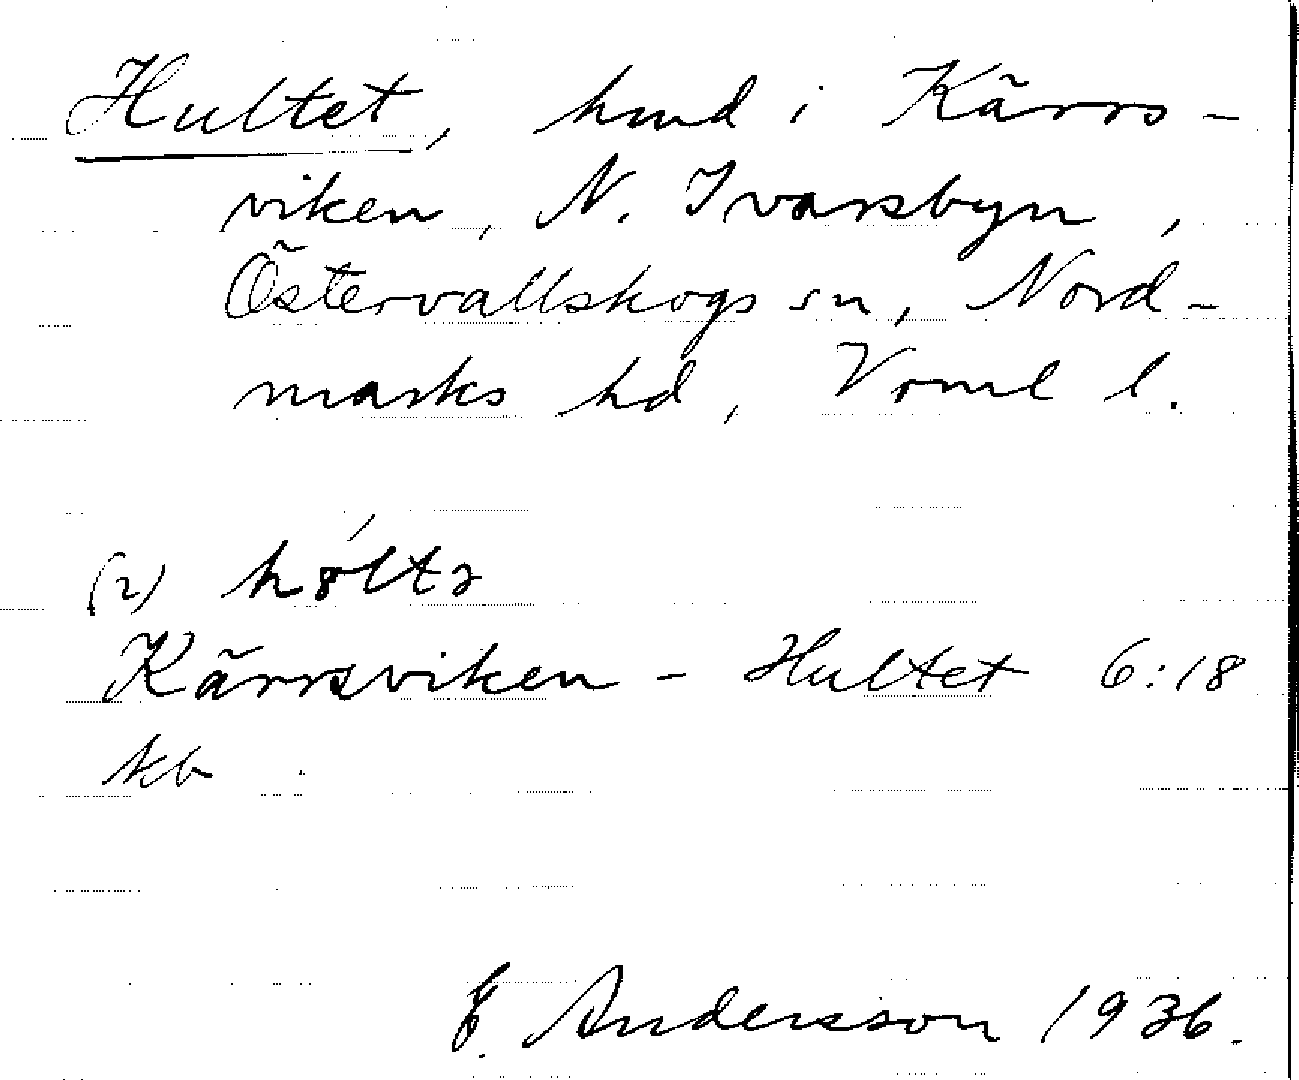 Hultet, hmd i Kärrs-
viken, N. Ivarsbyn,
Östervallskogs sn, Nord-
marks hd, Vrml l.
(2)
Kärrsviken - Hultet 6:18
kb
F. Andersson 1936.